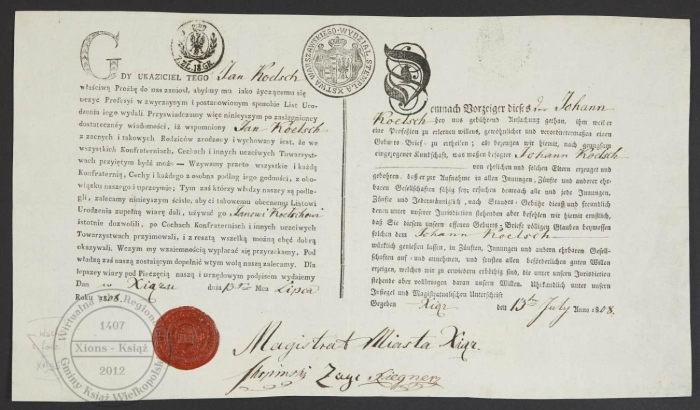 WYDZIAŁ STEPLA XSTWA WARSZAWSKIEGO
GDY UKAZICIEL TEGO Jan Koelsch
właściwą Prośbę do nas zaniosł, abyśmy mu iako życzącemu się
uczyć Professyi w zwyczaynym i postanowionym sposobie List Uro-
dzenia iego wydali. Przyświadczamy więc ninieyszym po zasiągnioney
dostateczney wiadomości, iż wspomniony Jan Koelsch
z zacnych i takowych Rodziców zrodzony i wychowany iest, iż we
wszystkich Konfraterniach, Cechach i innych uczciwych Towarzyst-
wach przyiętym bydź może — Wzywamy przeto wszystkie i każdą
Konfraternią, Cechy i każdego z osobna podług iego godności, z obo-
wiązku naszego i uprzeymie; Tym zaś którzy władzy naszey są podle-
gli, zalecamy ninieyszym ściśle, aby ci takowemu obecnemu Listowi
Urodzenia zupełną wiarę dali, używać go Janowi Koelschowi
istotnie dozwolili, po Cechach Konfraterniach i innych uczciwych
Towarzystwach przyimowali, i z resztą wszelką możną chęć dobrą
okazywali. Wczym my wzaiemnością wypłacać się przyrzekamy. Pod
władzą zaś naszą zostaiącym dopełnić w tym wolą naszą zalecamy. Dla
lepszey wiary pod Pieczęcią naszą i urzędowym podpisem wydaiemy
Dan w Xiążu dnia 13go Mca Lipca
Roku 1808.
Demnach Vorzeiger dieses der Johann
Koelsch bey uns gebührend Ansuchung gethan, ihm weil er
eine Profession zu erlernen willens, gewöhnlicher und verordnetermaßen einen
Geburts-Brief zu ertheilen; als bezeugen wir hiemit, nach genugsam
eingezogener Kundschaft, was maßen besagter Johann Koelsch
von ehrlichen und solchen Eltern erzeuget und
gebohren, daß er zur Aufnahme in allen Innungen, Zünften und andere ehr-
baren Gesellschaften fähig sey; ersuchen demnach alle und jede Innungen,
Zünfte und Jedermänniglich, nach Standes-Gebühr dienst und freundlich
denen unter unserer Jurisdiction stehenden aber befehlen wir hiemit ernstlich,
daß Sie diesem unsern offenen Geburts-Briefe völligen Glauben beymessen
solchen dem Johann Koelsch
würklich genießen lassen, in Zünften, Innungen und andern ehrbaren Gesell-
schaften auf- und annehmen, und sonsten allen beförderlichen guten Willen
erzeigen, welches wir zu erwiedern erböthig sind, die unter unserer Jurisdiction
stehende aber vollbringen daran unsern Willen. Uhrkundlich unter unserm
Insiegel und Magistratualischen Unterschrift
Gegeben Xiąż den 13ten July Anno 1808.
Magistrat Miasta Xiąż.
Wirtualne Regionalne
1407
Xions - Książ
2012
Gminy Książ Wielkopolski